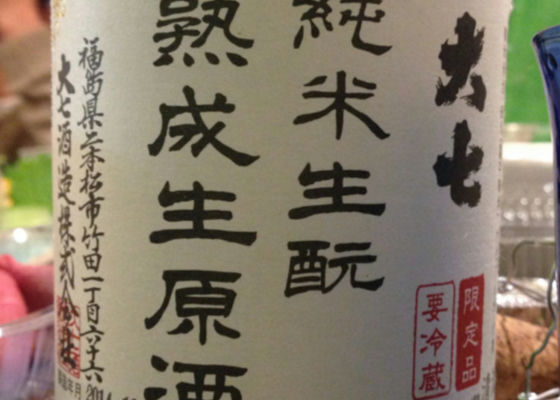 大七
限定品
要冷蔵
純米生酛
熟成生原酒
福島県二本松市竹田一丁目六十六
大七酒造株式会社